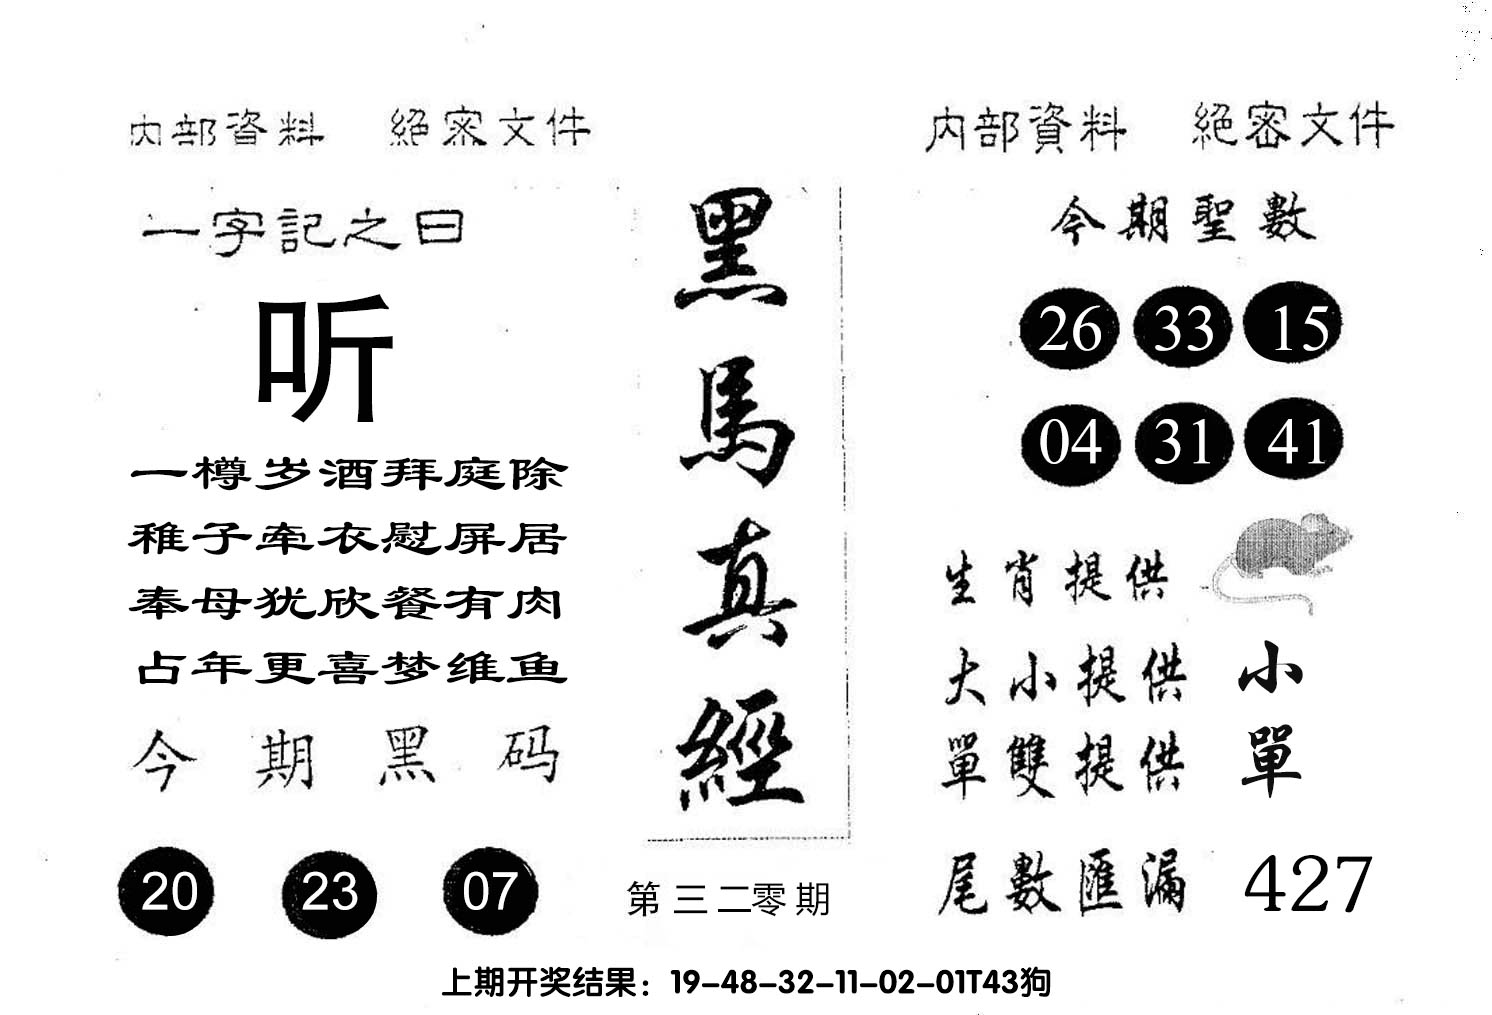 内部資料 絕密文件
一字記之曰
听
一樽岁酒拜庭除
稚子牵衣慰屏居
奉母犹欣餐有肉
占年更喜梦维鱼
今期黑码
20 23 07
黑馬真經
第三二零期
内部資料 絕密文件
今期聖數
26 33 15
04 31 41
生肖提供
大小提供 小
單雙提供 單
尾數匯漏 427
上期开奖结果：19-48-32-11-02-01T43狗